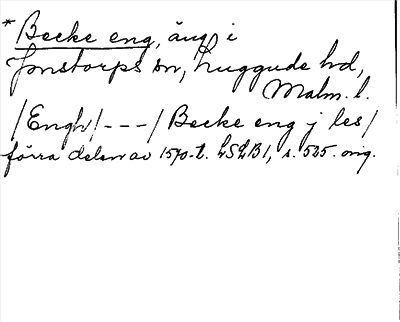 * Becke eng, äng i
Jonstorps sn, Luggude hd,
Malm. l.
/Engh/---/Becke eng j les/
förra delen av 1570-t. LSÄB1, s. 525. orig.